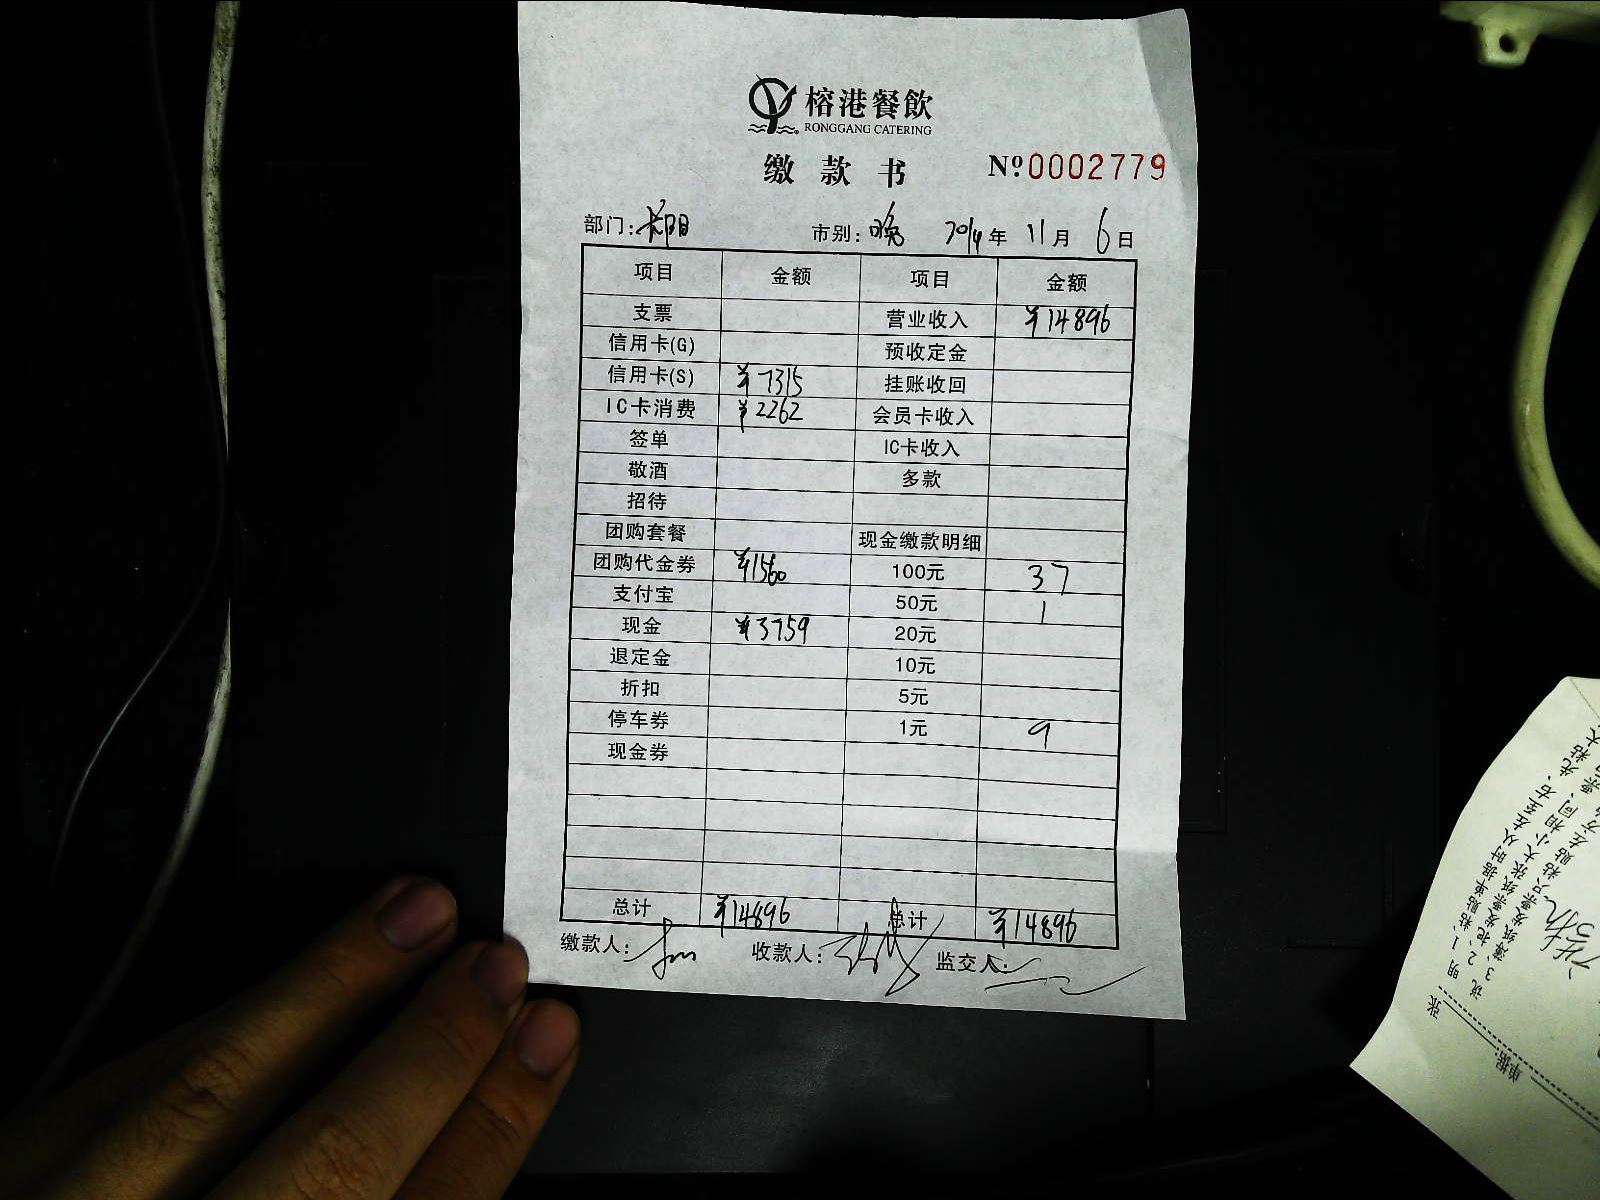 榕港餐飲
RONGGANG CATERING
缴款书 № 0002779
部门: 长阳 市别: 晚 2014年 11月 6日
项目 金额 项目 金额
支票 营业收入 ¥14896
信用卡(G) 预收定金
信用卡(S) ¥7315 挂账收回
IC卡消费 ¥2262 会员卡收入
签单 IC卡收入
敬酒 多款
招待
团购套餐 现金缴款明细
团购代金券 ¥1560 100元 37
支付宝 50元 1
现金 ¥3759 20元
退定金 10元
折扣 5元
停车券 1元 9
现金券
总计 ¥14896 总计 ¥14896
缴款人: 收款人: 监交人:
说明 1、粘贴单据时从左至右、
2、把发票纸张大小相同、先粘
单据: 张